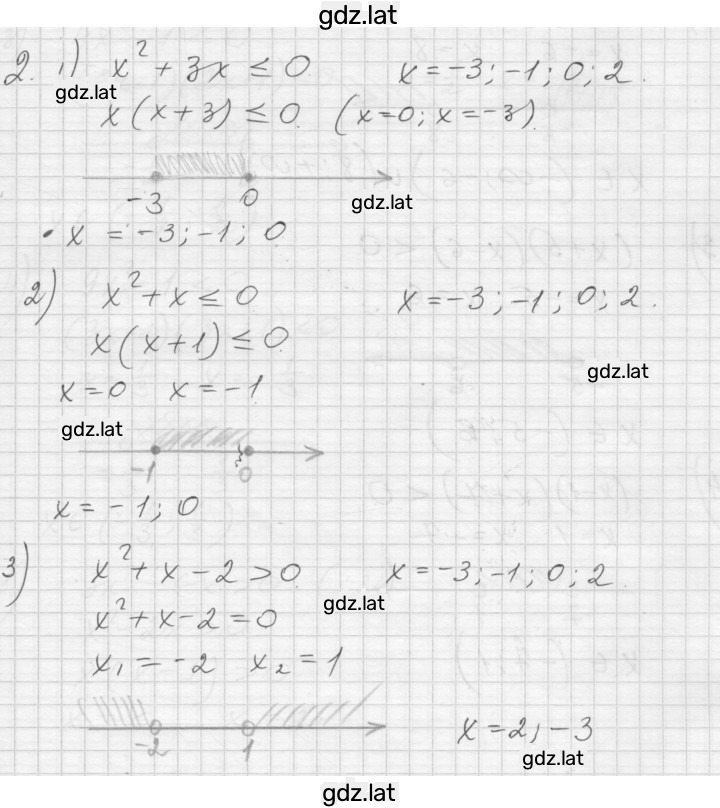 gdz.lat
2. 1) x² + 3x ≤ 0 x = -3; -1; 0; 2.
gdz.lat
x(x+3) ≤ 0 (x=0; x=-3)
-3 0
gdz.lat
• x = -3; -1; 0
2) x² + x ≤ 0 x = -3; -1; 0; 2.
x(x+1) ≤ 0
gdz.lat
x = 0 x = -1
gdz.lat
-1 0
x = -1; 0
3) x² + x - 2 > 0 x = -3; -1; 0; 2.
gdz.lat
x² + x - 2 = 0
x₁ = -2 x₂ = 1
-2 1
x = 2; -3
gdz.lat
gdz.lat